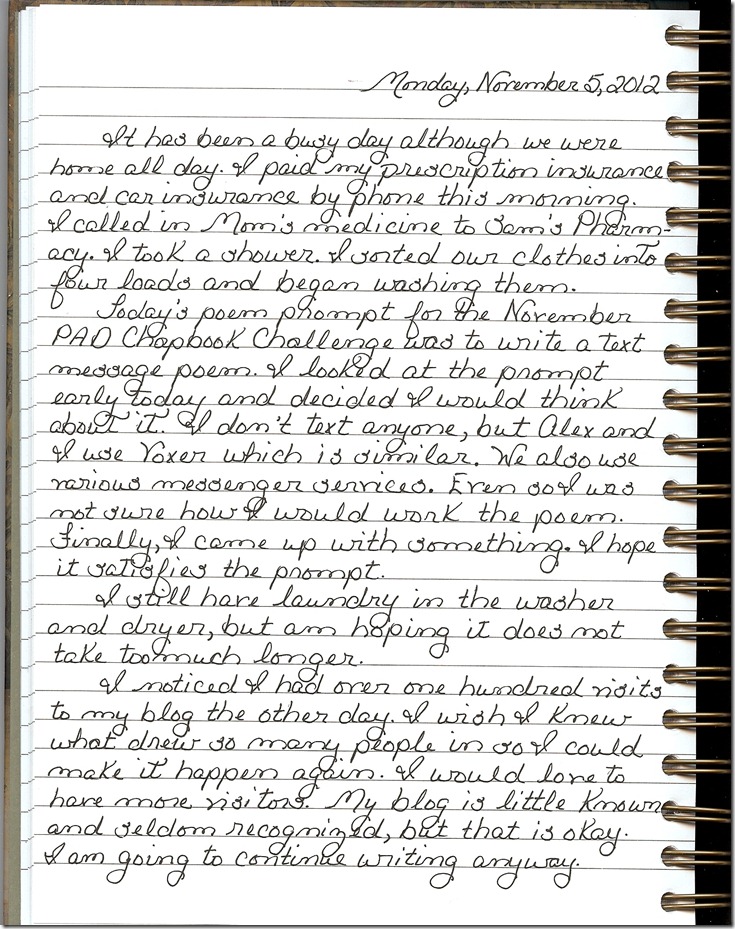 Monday, November 5, 2012
It has been a busy day although we were
home all day. I paid my prescription insurance
and car insurance by phone this morning.
I called in Mom's medicine to Sam's Pharm-
acy. I took a shower. I sorted our clothes into
four loads and began washing them.
Today's poem prompt for the November
PAD Chapbook Challenge was to write a text
message poem. I looked at the prompt
early today and decided I would think
about it. I don't text anyone, but Alex and
I use Voxer which is similar. We also use
various messenger services. Even so I was
not sure how I would work the poem.
Finally, I came up with something. I hope
it satisfies the prompt.
I still have laundry in the washer
and dryer, but am hoping it does not
take too much longer.
I noticed I had over one hundred visits
to my blog the other day. I wish I knew
what drew so many people in so I could
make it happen again. I would love to
have more visitors. My blog is little known
and seldom recognized, but that is okay.
I am going to continue writing anyway.